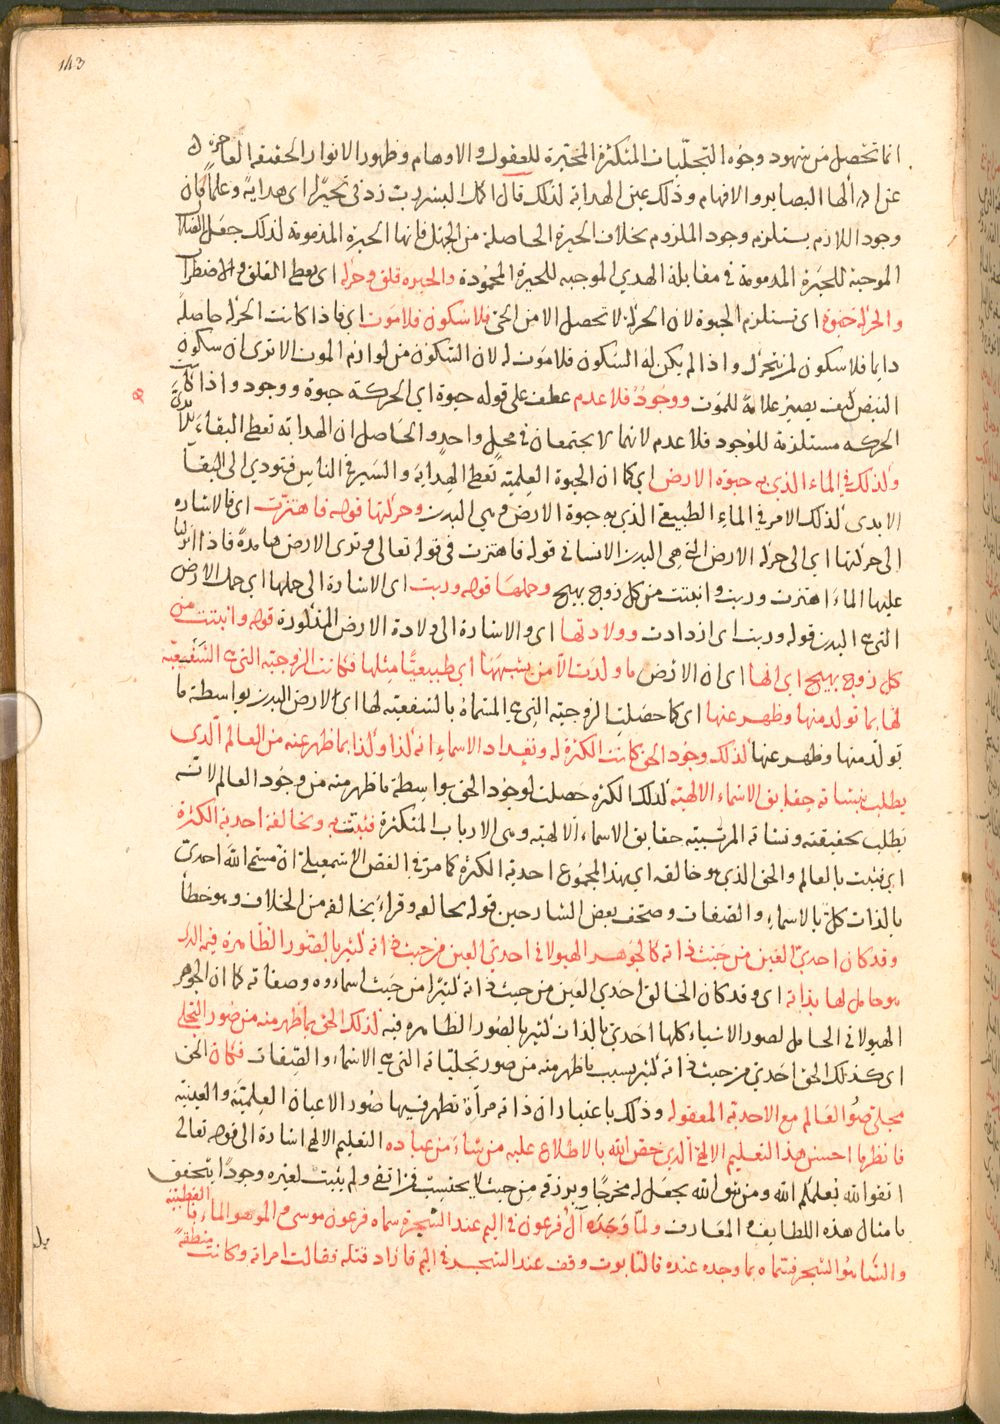 143
انما تحصل من شهود وجوه التجليات المتكثرة المحيرة للعقول والاوهام وظهور الانوار الحقيقية العاجزة
عن ادراكها البصاير والافهام وذلك عين الهداية لذلك قال اكمل البشر رب زدني تحيرا اى هداية وعلما فان
وجود اللازم يستلزم وجود الملزوم بخلاف الحيرة الحاصلة من الجهل فانها الحيرة المذمومة لذلك جعل الضلالة
الموجبة للحيرة المذمومة في مقابلة الهدي الموجبه للحيرة المحمودة والحيره قلق وحركة اى يعطى القلق والاضطراب
والحركة حيوة اى تستلزم الحيوة لان الحركة لا تحصل الا من الحى فلا سكون فلا موت اى فاذا كانت الحركة حاصلة
دايما فلا سكون لمن يتحرك واذا لم يكن له السكون فلا موت له لان السكون من لوازم الموت الا ترى ان سكون
النبض كيف يصير علامة للموت ووجود فلا عدم عطف على قوله حيوة اى الحركة حيوة ووجود واذا كانت
الحركه مستلزمة للوجود فلا عدم لانهما لا يجتمعان في محل واحد والحاصل ان الهداية تعطى البقاء
وكذلك في الماء الذي به حيوة الارض اي كما ان الحيوة العلمية تعطى الهداية والسير في الناس فتودي الى البقا
الابدى كذلك الامر في الماء الطبيعة الذي به حيوة الارض وهي البدن وحركتها قوله فاهتزت اى فالاشاره
الى حركتها اي الى حركة الارض التى هى البدن الانسانى قوله فاهتزت في قوله تعالى وترى الارض هامدة فاذا انزلنا
عليها الماء اهتزت وربت وانبتت من كل زوج بهيج وحملها قوله وربت اى الاشارة الى حملها اى حمل الارض
التى هي البدن قوله وربت اى ازدادت وولادتها اى والاشارة الى ولادة الارض المذكورة قوله وانبتت من
كل زوج بهيج اى انها اى ان الارض ما ولدت الا من يشبهها اى طبيعيا مثلها فكانت الزوجية التى هي الشفعية
لها بما تولد منها وظهر عنها اى كما حصلت الزوجية التى هي المسماة بالشفعية لها اى الارض البدن بواسطة ما
تولد منها وظهر عنها كذلك وجود الحق كانت الكثرة له وتعداد الاسماء انه كذا وكذا بما ظهر عنه من العالم الذى
يطلب بنشاته حقايق الاسماء الالهية كذلك الكثرة حصلت لوجود الحق بواسطة ما ظهر منه من وجود العالم لانه
يطلب بحقيقته ونشاته المرتبية حقايق الاسماء الالهية وهى الارباب المتكثرة فثبتت به وبخالقه احدية الكثرة
اى فثبت بالعالم والحق الذى هو خالقه اى بهذا المجموع احدية الكثرة كما مر في الفص الاسمعيلى ان مسمى الله احدى
بالذات كل بالاسماء والصفات وصحف بعض الشارحين قوله بخالقه وقراء يخالفه من الخلاف وهو خطأ
وقد كان احدى العين من حيث ذاته كالجوهر الهيولانى احدي العين من حيث ذاته كثير بالصور الظاهرة فيه الذى
هو حامل لها بذاته اى وقد كان الخالق احدي العين من حيث ذاته كثيرا من حيث اسماءه وصفاته كما ان الجوهر
الهيولانى الحامل لصور الاشياء كلها احدى بالذات كثير بالصور الظاهره فيه كذلك الحق بما ظهر منه من صور التجلى
اى كذلك الحق احدي من حيث ذاته كثير بسبب ما ظهر منه من صور تجلياته التى هي الاسماء والصفات فكان الحق
مجلى صور العالم مع الاحدية المعقولة وذلك باعتبار ان ذاته مرآة تظهر فيها صور الاعيان العلمية والعينية
فانظر ما احسن هذا التعليم الالهى الذي خص الله بالاطلاع عليه من شاء من عباده التعليم الالهى اشارة الى قوله تعالى
اتقوا الله يعلمكم الله ومن يتق الله يجعل له مخرجا ويرزقه من حيث لا يحتسب فمن اتقى ولم يثبت لغيره وجودا يتحقق
بامثال هذه اللطايف والمعارف ولما وجده آل فرعون في اليم عند الشجرة سماه فرعون موسى مو الماء هو الماء بالقبطية
والشا هو الشجر فسماه بما وجده عنده فالتابوت وقف عند الشجر في اليم فاراد قتله فقالت امراته وكانت منطقة